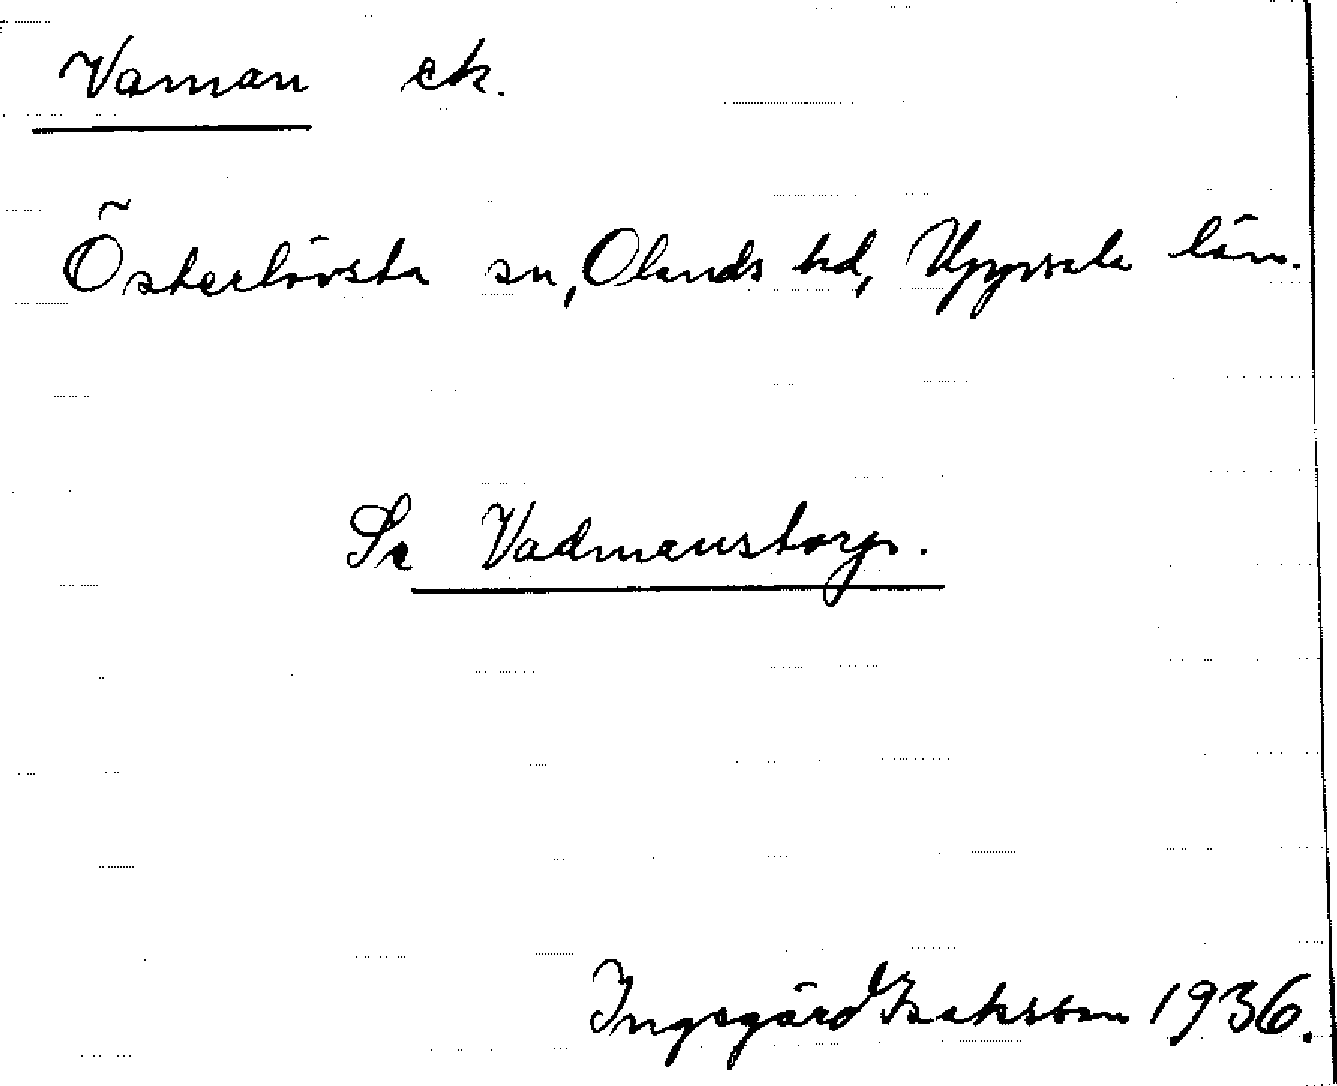 Vaman ek.
Österlövsta sn, Olands hd, Uppsala län.
Se Vadmanstorp.
Ingegärd Isaksson 1936.